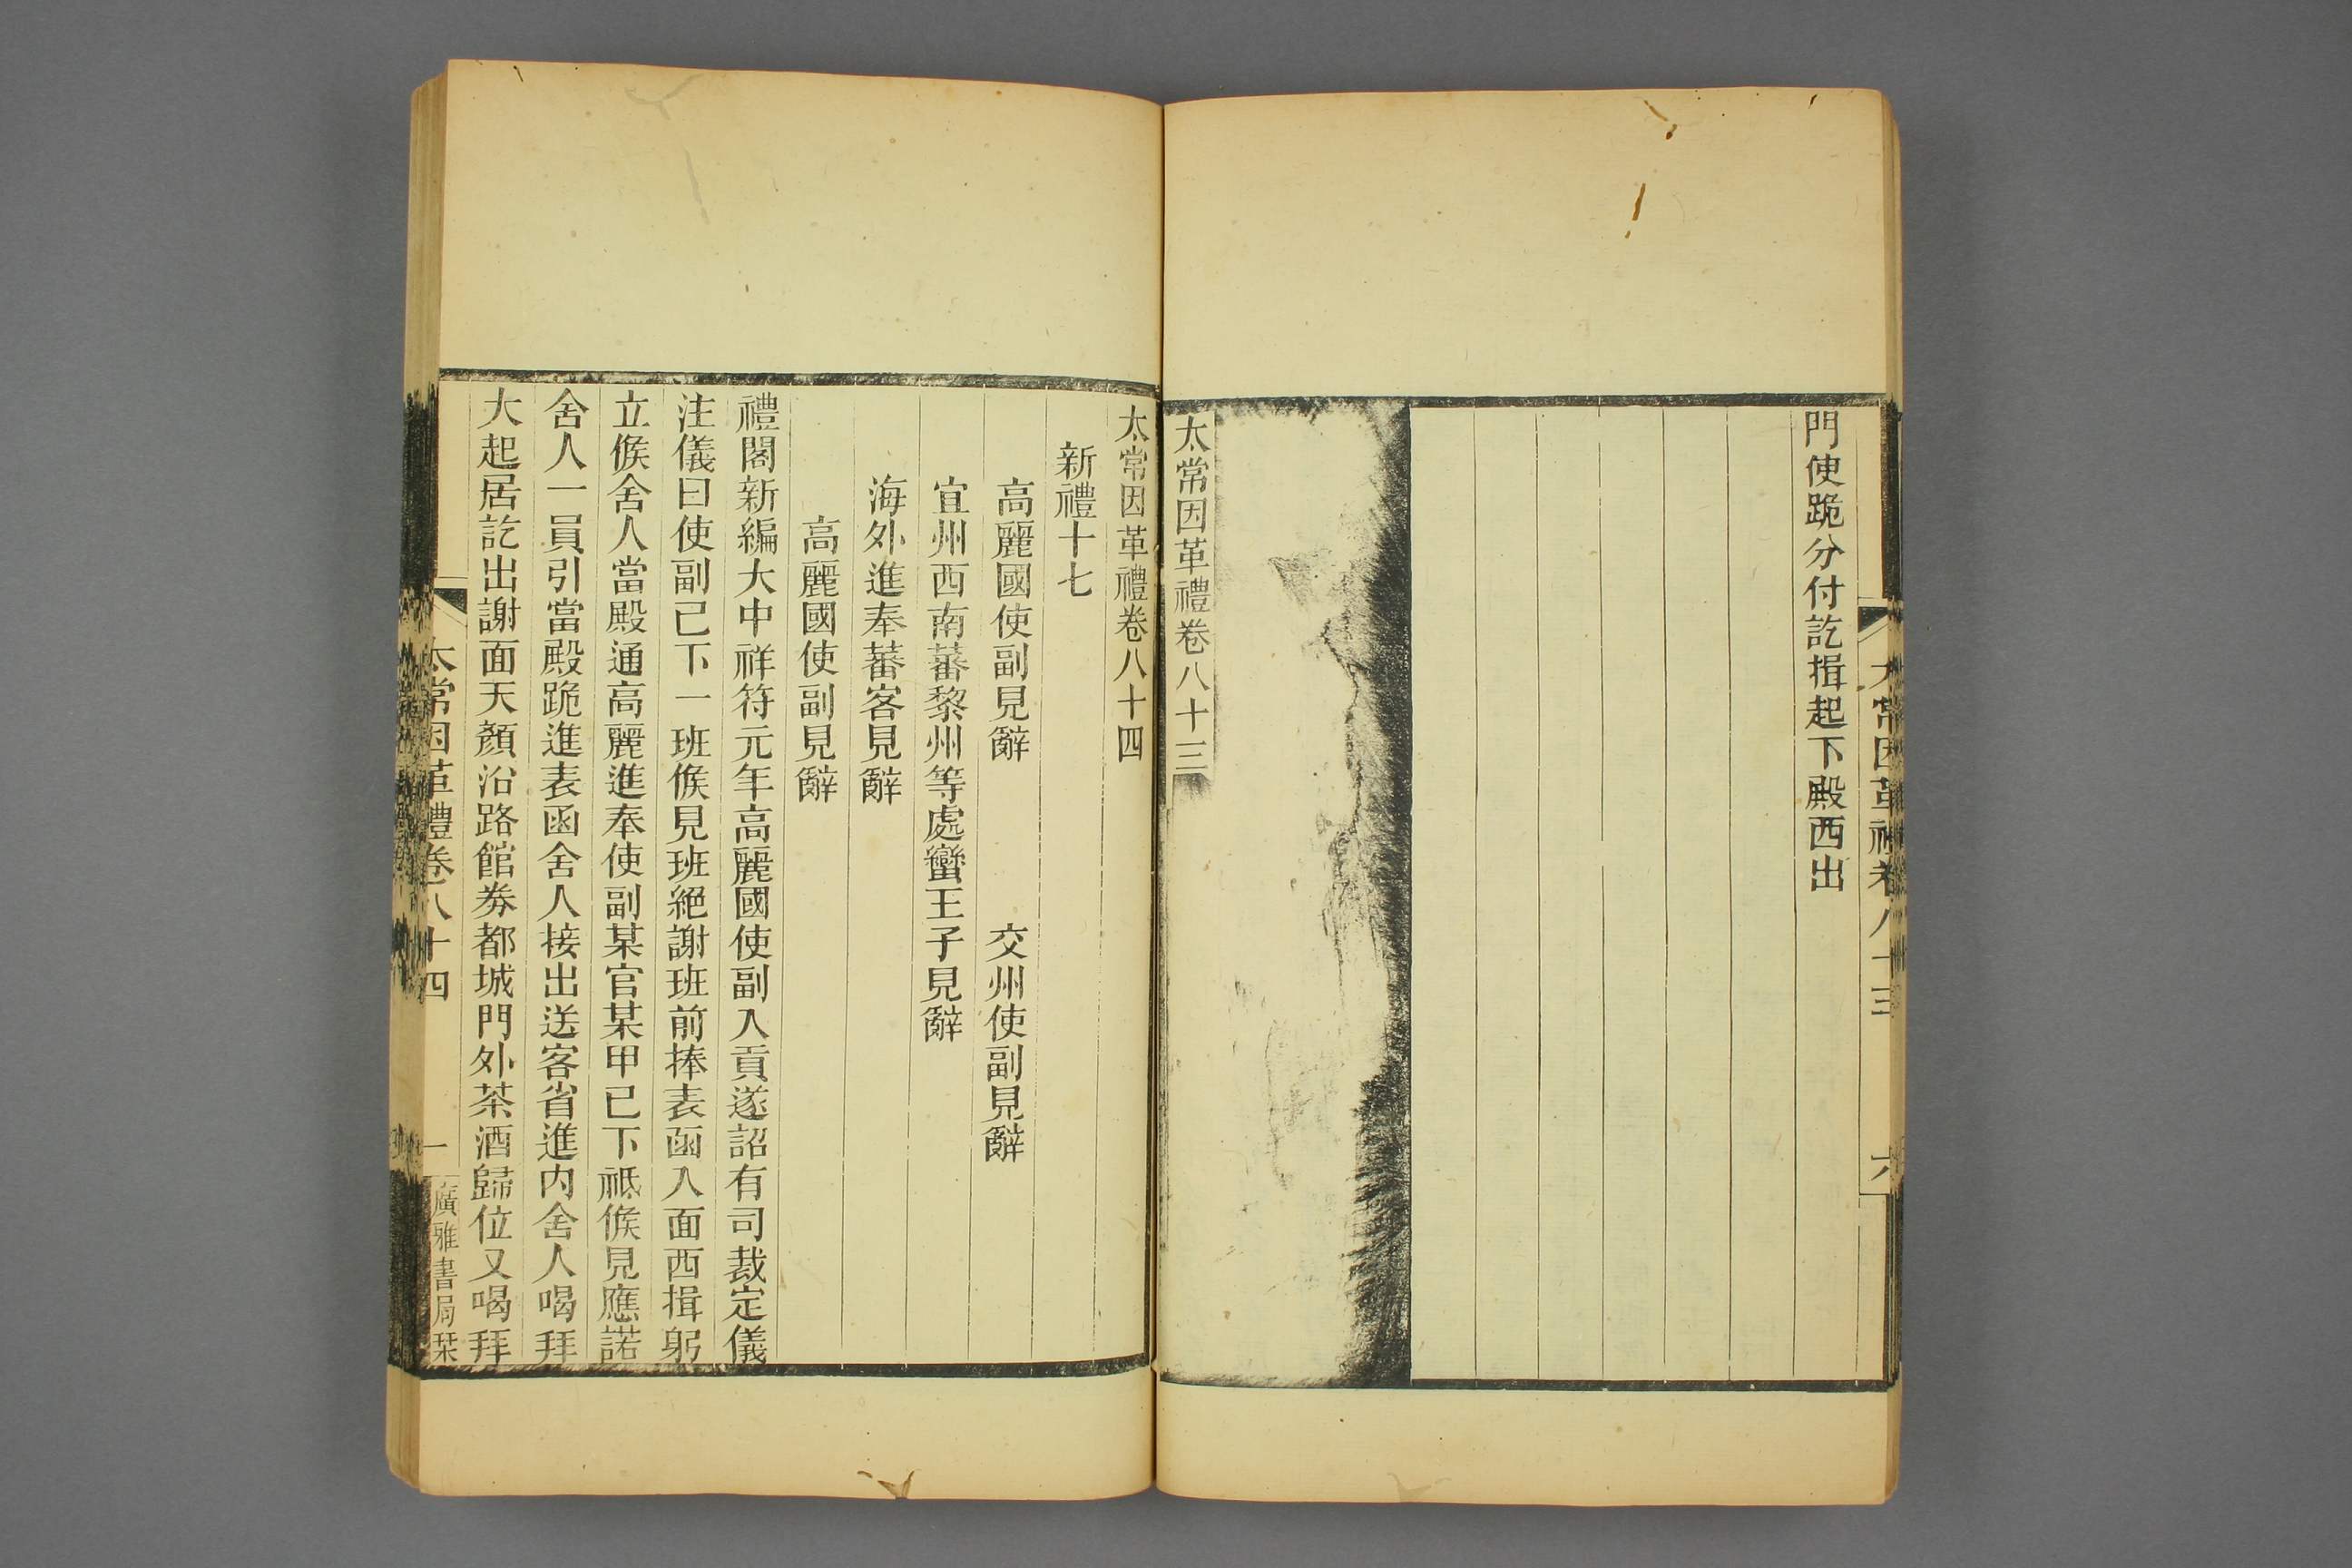 太常因革禮卷八十三
六
門使跪分付訖揖起下殿西出
太常因革禮卷八十三
太常因革禮卷八十四
新禮十七
高麗國使副見辭　交州使副見辭
宜州西南蕃黎州等處蠻王子見辭
海外進奉蕃客見辭
高麗國使副見辭
禮閣新編大中祥符元年高麗國使副入貢遂詔有司裁定儀
注儀曰使副已下一班候見班絕謝班前捧表函入面西揖躬
立候舍人當殿通高麗進奉使副某官某甲已下祗候見應諾
舍人一員引當殿跪進表函舍人接出送客省進內舍人喝拜
大起居訖出謝面天顏沿路館券都城門外茶酒歸位又喝拜
太常因革禮卷八十四
一
廣雅書局栞